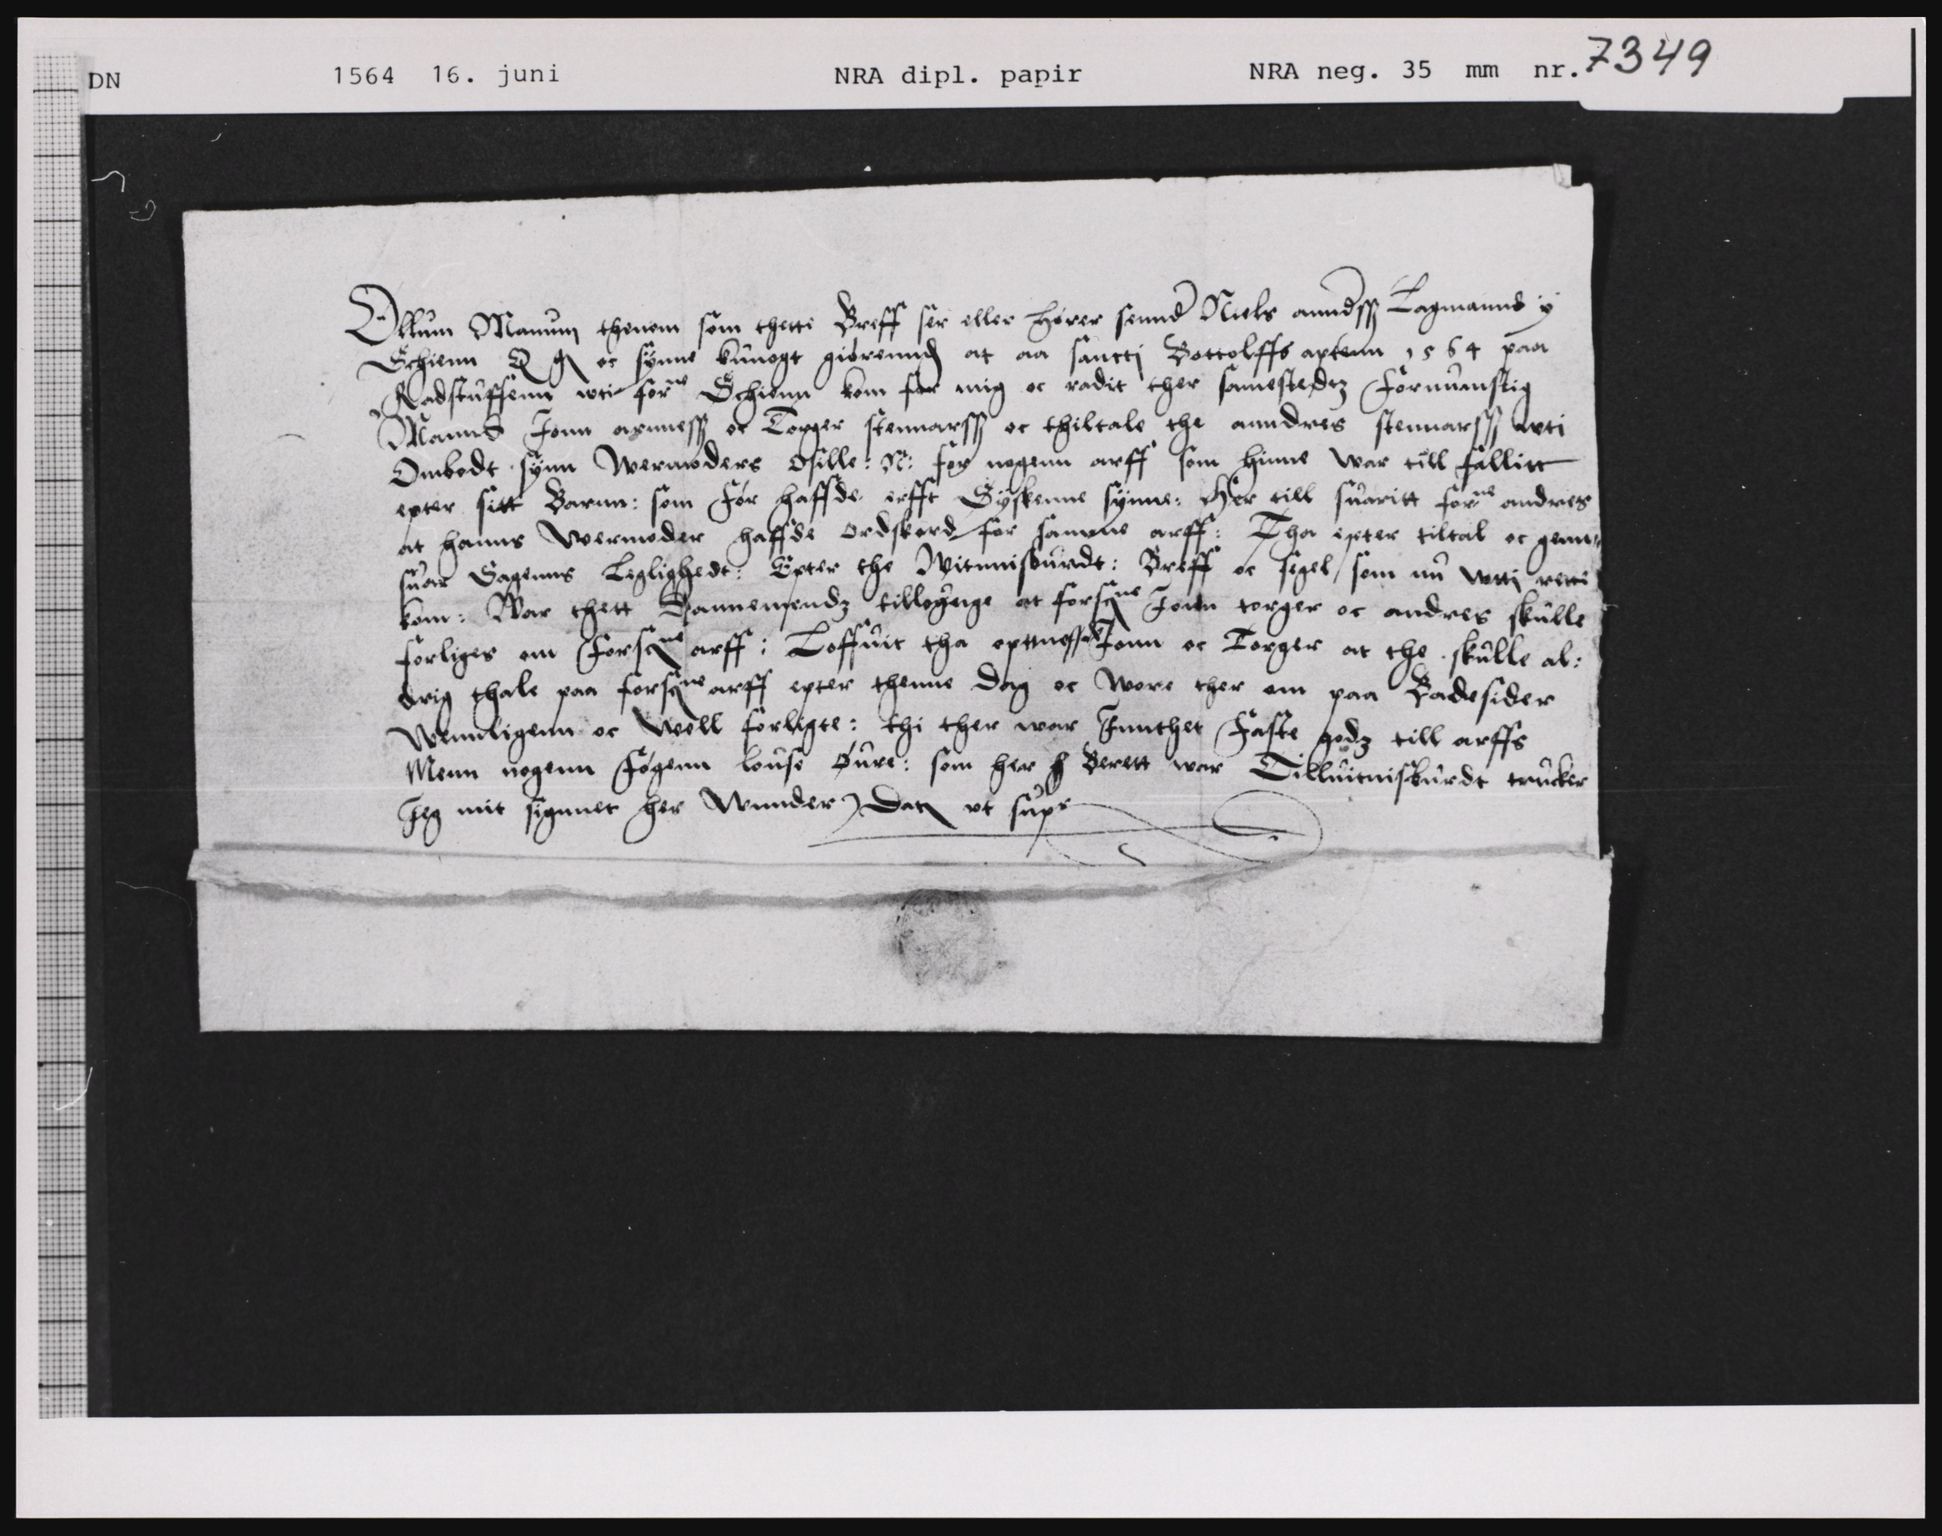 DN 1564 16. juni NRA dipl. papir NRA neg. 35 mm nr. 7349
Ollum Mannum thenom som thette Breff ser eller hører sennd Niels anndrss Lagmannd y
Schienn Q g oc synne kunogt giørennd at aa sancti Bottolffs aptenn 1564 paa
Radstuffuenn wti forne Schienn kom for mig oc radit ther samestedtz fornumstig
Mannd Jonn aswnss oc Torger stennarss oc thiltale the anndres stennarss wti
Ombodt synn Wermoders Osille: N: for nogenn arff som hinne war till fallitt
epter sitt Barnn: som før haffde erfft Syskenne synne: Her till suaritt forne andres
at hanns Wermoder haffde ordskord for samme arff: Tha epter tiltal oc genn-
suar Sagenns Leglighedt: Epter the Witnnisburdt: Breff oc segel som nu wtti rette
kom: War thett Dannemendz tilløgnige at forscne Jonn torger oc andres skulle
forliges om forscne arff: Loffuit tha optnessde Jonn oc Torger at the skulle al:
drig thale paa forscne arff epter thenne dag oc Wore ther om paa Badesider
Wennligenn oc Woll forligte: thi ther war Jnnthet Faste godz till arffs
Menn nogenn Føgenn løuse Øure: som her Berett war Tilluitnisburdt trucker
Jeg mit signnet her Wnnder Dat ut supr